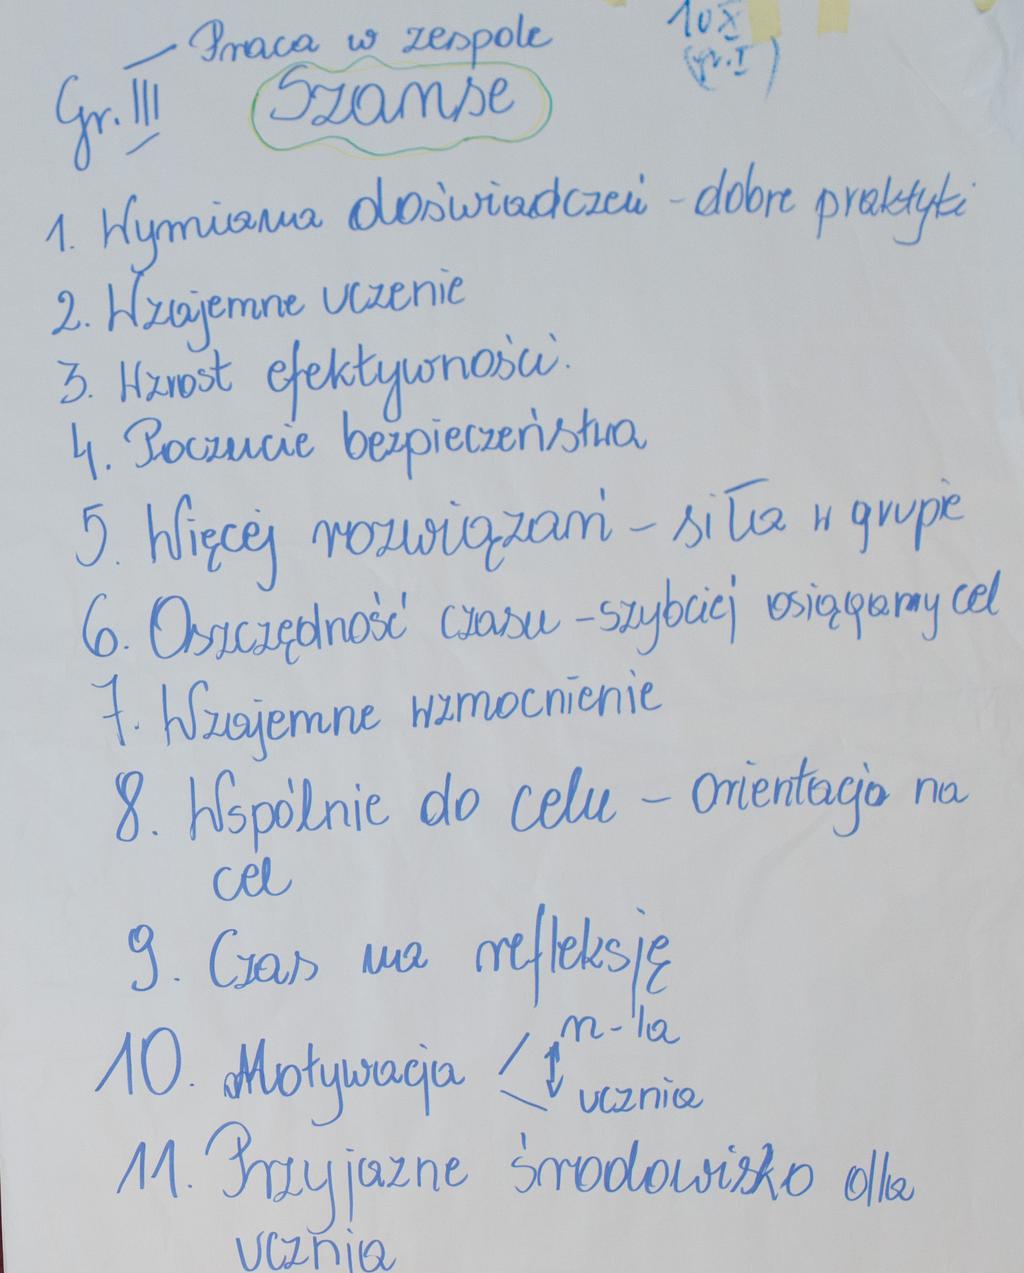 Praca w zespole
10 X
(gr. I)
Gr. III
Szanse
1. Wymiana doświadczeń - dobre praktyki
2. Wzajemne uczenie
3. Wzrost efektywności.
4. Poczucie bezpieczeństwa
5. Więcej rozwiązań - siła w grupie
6. Oszczędność czasu - szybciej osiągamy cel
7. Wzajemne wzmocnienie
8. Wspólnie do celu - orientacja na
cel
9. Czas na refleksję
n-la
10. Motywacja
ucznia
11. Przyjazne środowisko dla
ucznia